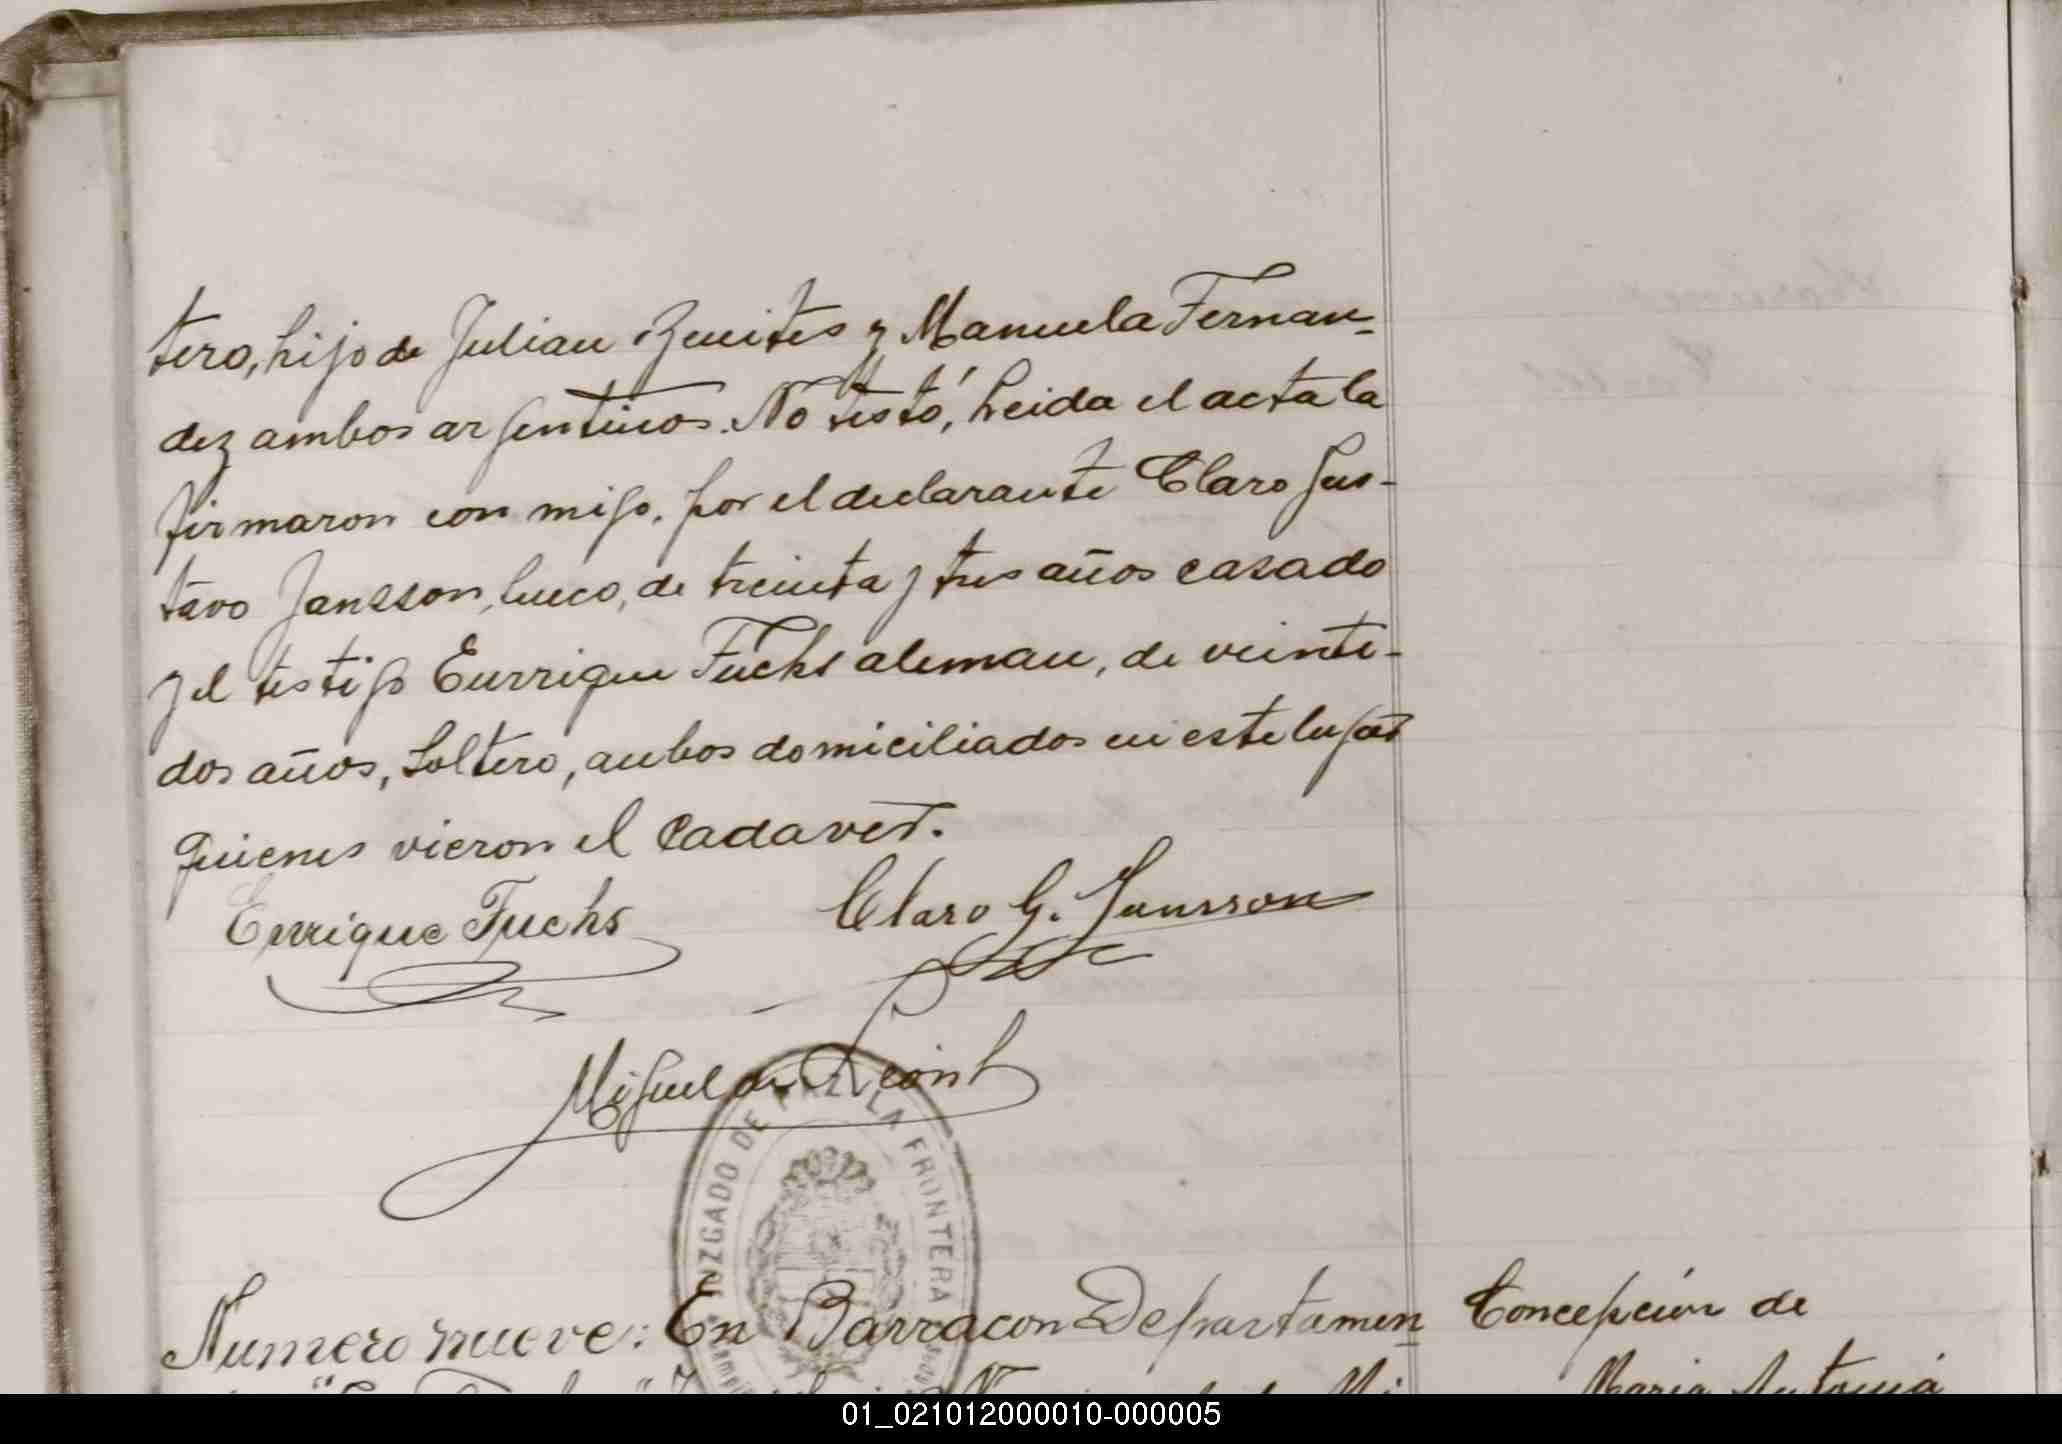 tero, hijo de Julian Benites y Manuela Fernan-
dez ambos argentinos. No testó, Leida el acta la
firmaron con migo, por el declarante Claro Gus-
tavo Jansson, sueco, de treinta y tres años casado
y el testigo Enrrique Fuchs aleman, de veinti-
dos años, Soltero, ambos domiciliados en este lugar
quienes vieron el Cadaver.
Enrrique Fuchs Claro G. Jansson
Miguel de
JUZGADO DE PAZ LA FRONTERA
Numero nueve: En Barracon Departamen Concepción de
Maria Antonia
01_021012000010-000005